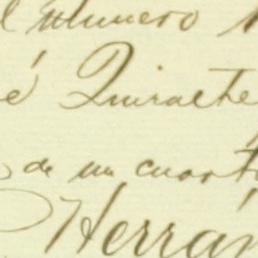 el número
é Quirache
de un cuart
Herrán